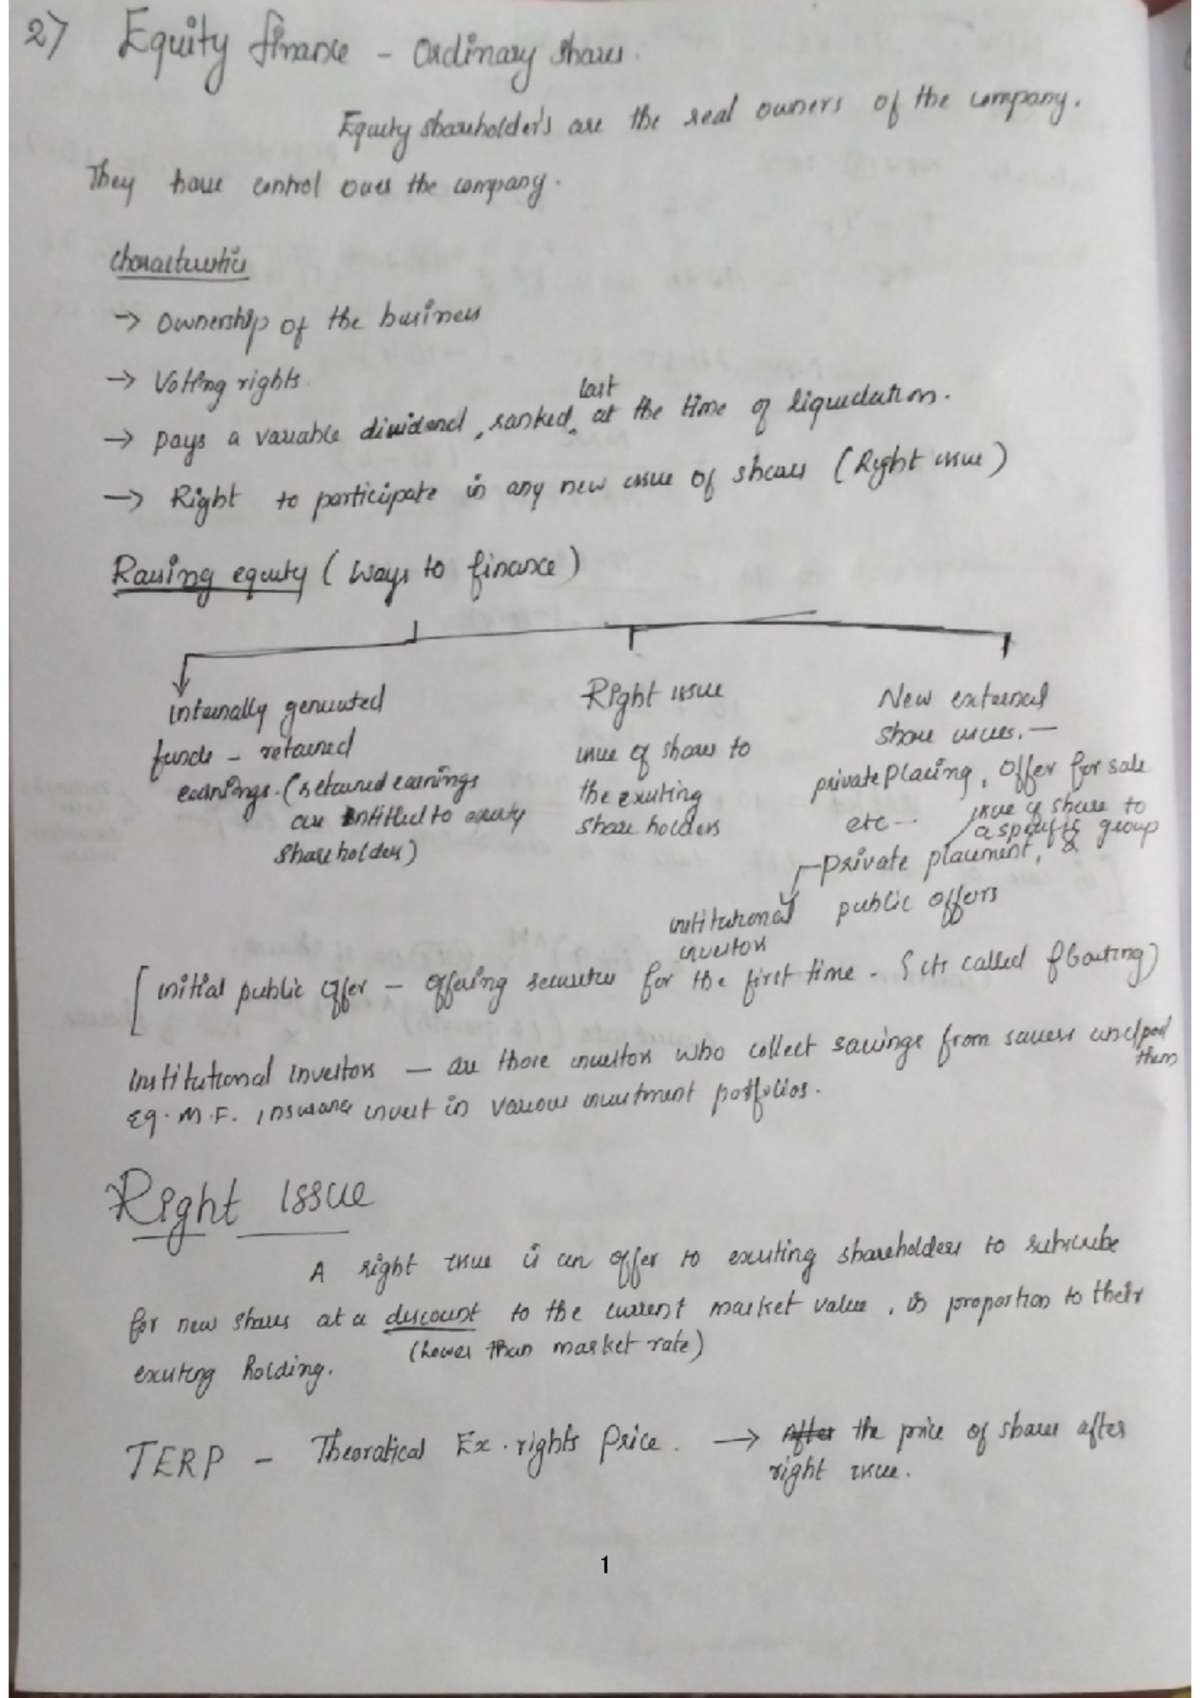 2) Equity finance - Ordinary shares.
Equity shareholder's are the real owners of the company.
They have control over the company.
Characteristics
→ Ownership of the business
→ Voting rights.
→ pays a variable dividend, ranked last at the time of liquidation.
→ Right to participate in any new issue of shares (Right issue)
Raising equity (Ways to finance)
Internally generated
funds - retained
earnings. (retained earnings
are entitled to equity
shareholders)
Right issue
issue of shares to
the existing
share holders
New external
share issues. -
private placing, offer for sale
etc --
issue of share to
a specific group
private placement, &
public offers
institutional
investors
[initial public offer - offering securities for the first time - (its called floating)
Institutional investors - are those investors who collect savings from savers and pool
them
eg. M.F. insurance invest in various investment portfolios.
Right issue
A right issue is an offer to existing shareholders to subscribe
for new shares at a discount to the current market value, in proportion to their
(Lower than market rate)
existing holding.
TERP - Theoratical Ex. rights Price. → After the price of shares after
right issue.
1